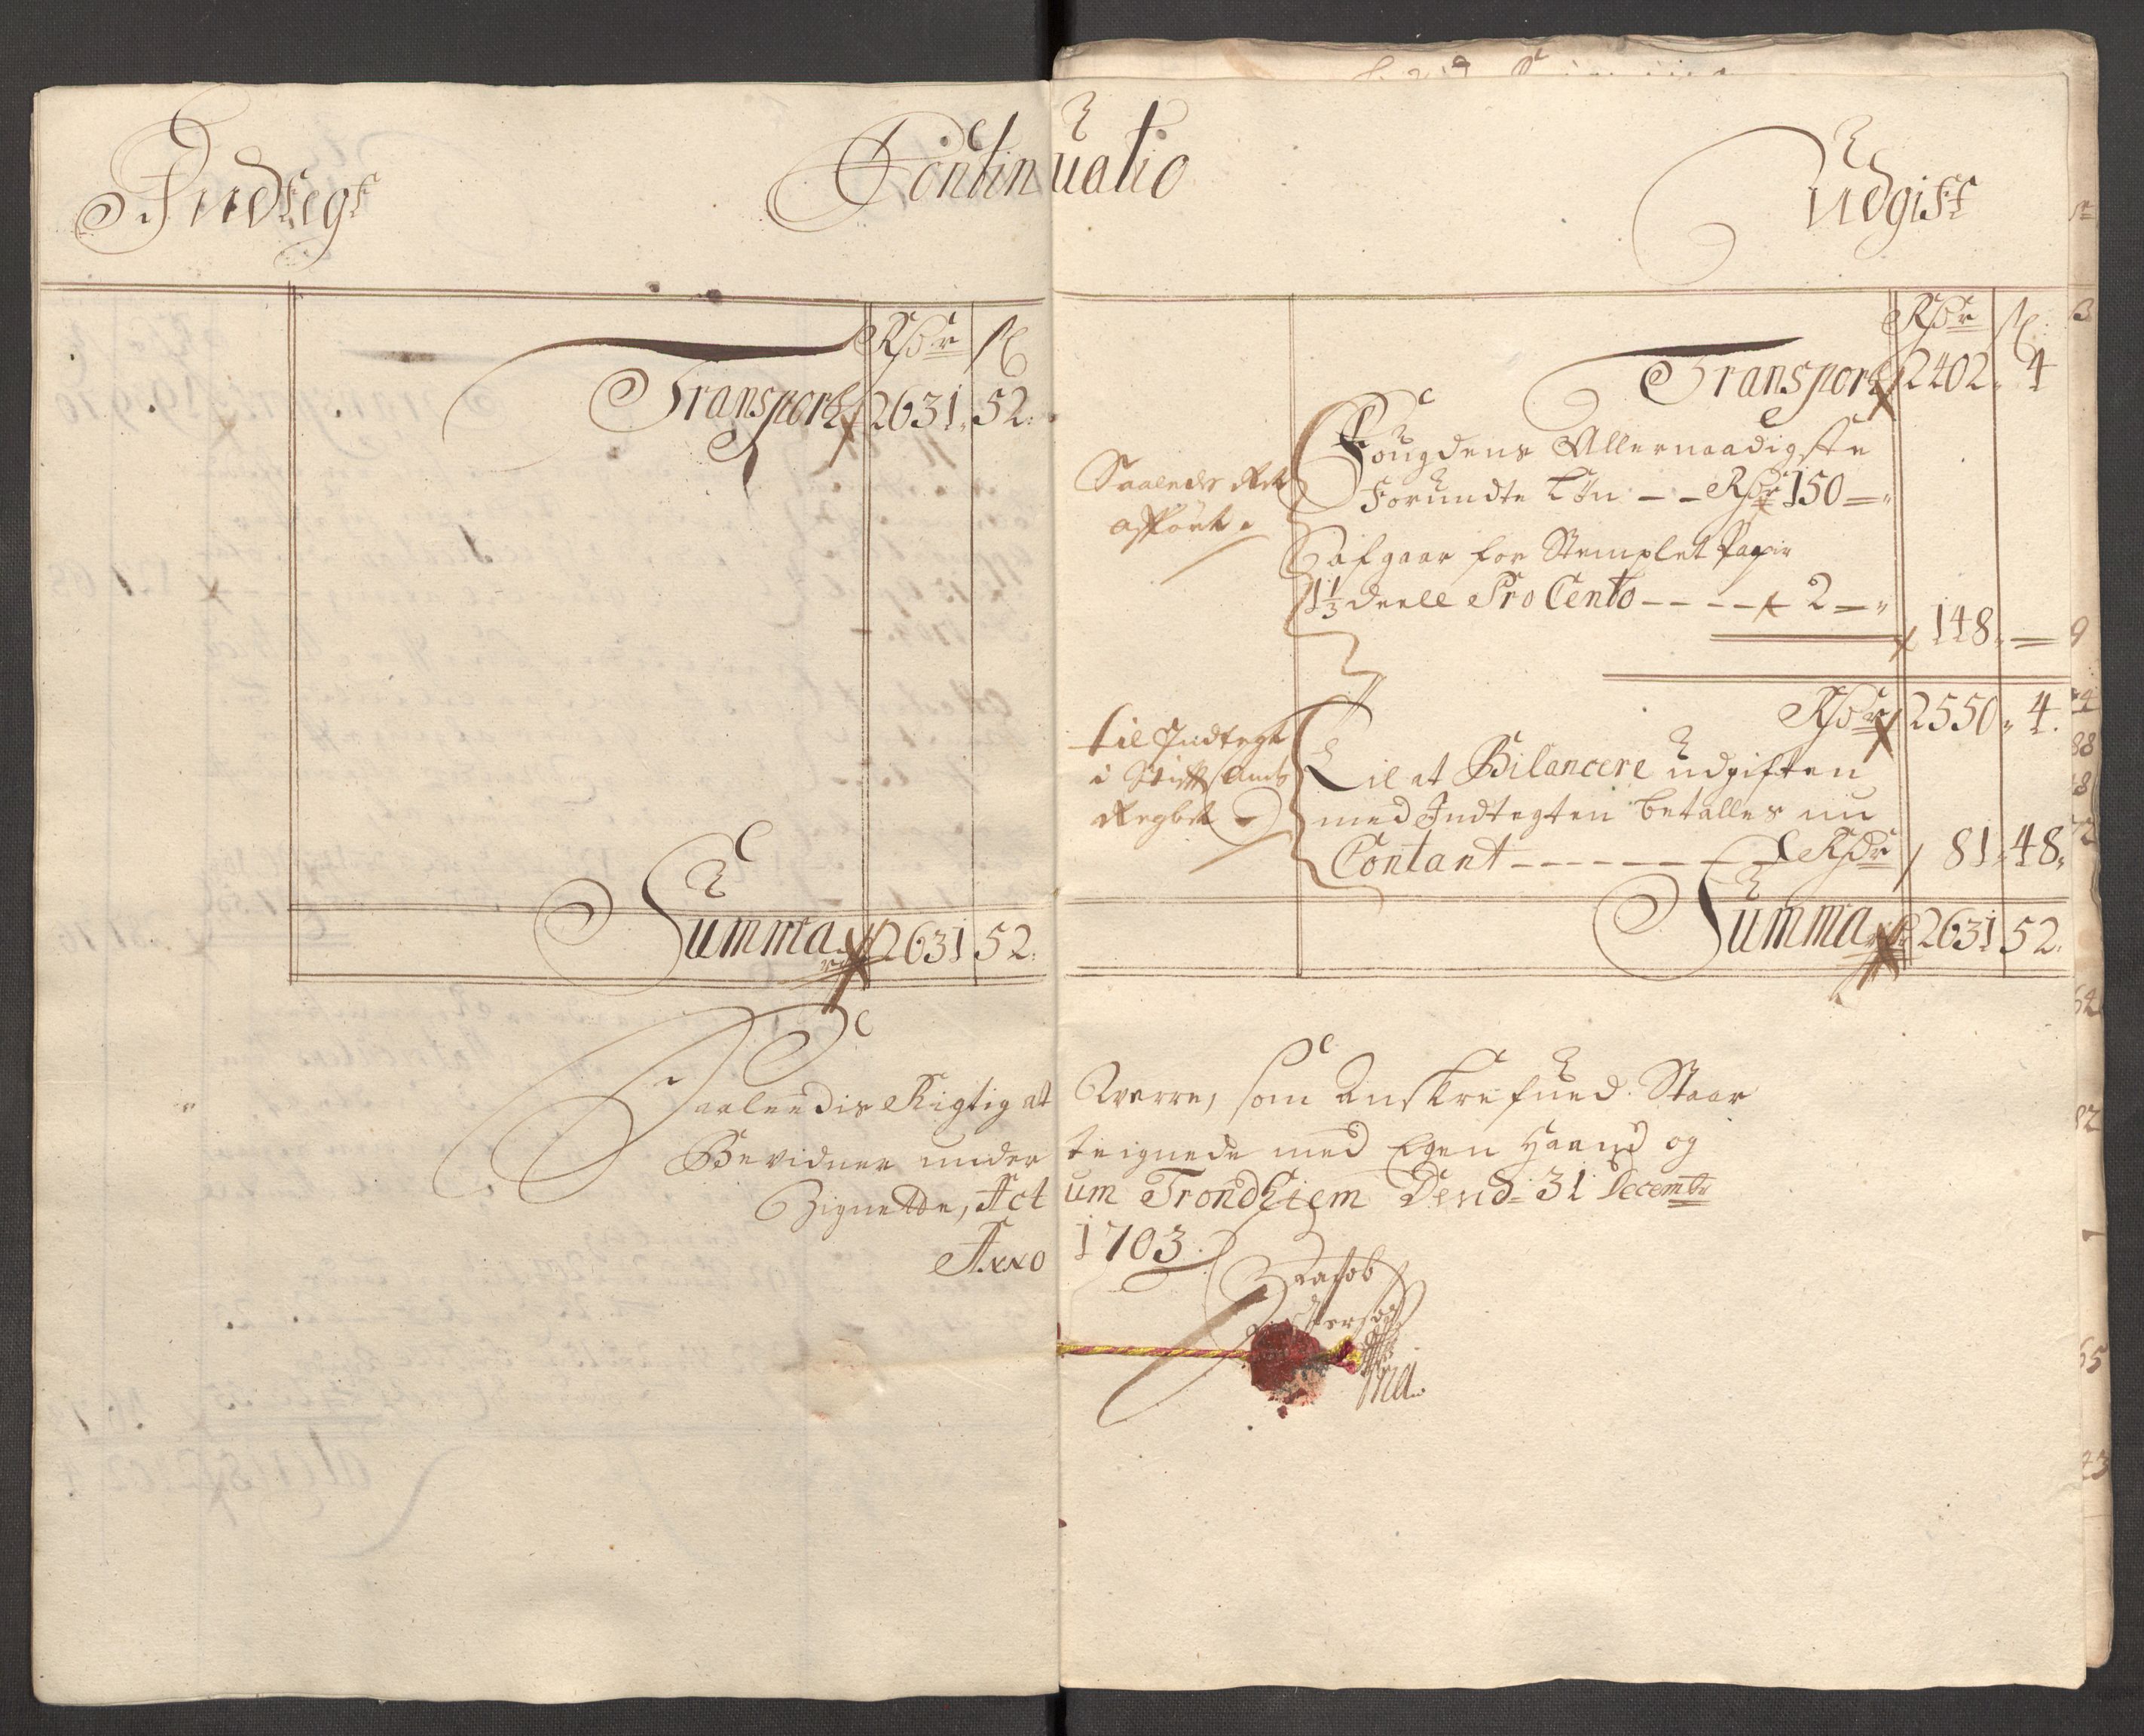 Indtegt
Continuatio
Udgift
Rdr ß
Transport 2631 52
Summa 2631 52
Rdr ß
Transport 2402 4
Saaledes Ret
afført
Fougdens Allernaadigste
Forundte Løn — Rdr 150 —
Hafgaar for Stemplet Papir
1 1/3 deell Pro Cento — — — — 2 —
148 —
Rdr 2550 4
til Indtegt
i Stifft Amts
Regbet
Til at Bilancere udgiften
med Indtegten betalles nu
Contant — — — — — — Rdr 81 48
Summa 2631 52
Saaleedis Rigtig at Werre, som Anskrefued Staar
Bevidner under teignede med Egen Haand og
Zignette, Actum Trondhiem Dend 31 Decembr
Anno 1703
Jacob